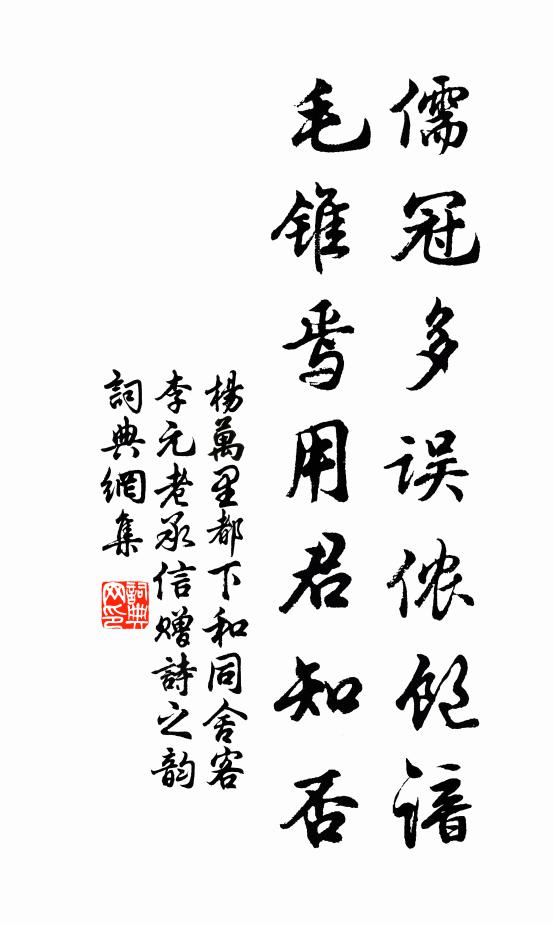 儒冠多误侬饱谙
毛锥焉用君知否
楊萬里都下和同舍客
李元老承信赠詩之韵
詞典網集
詞典网印